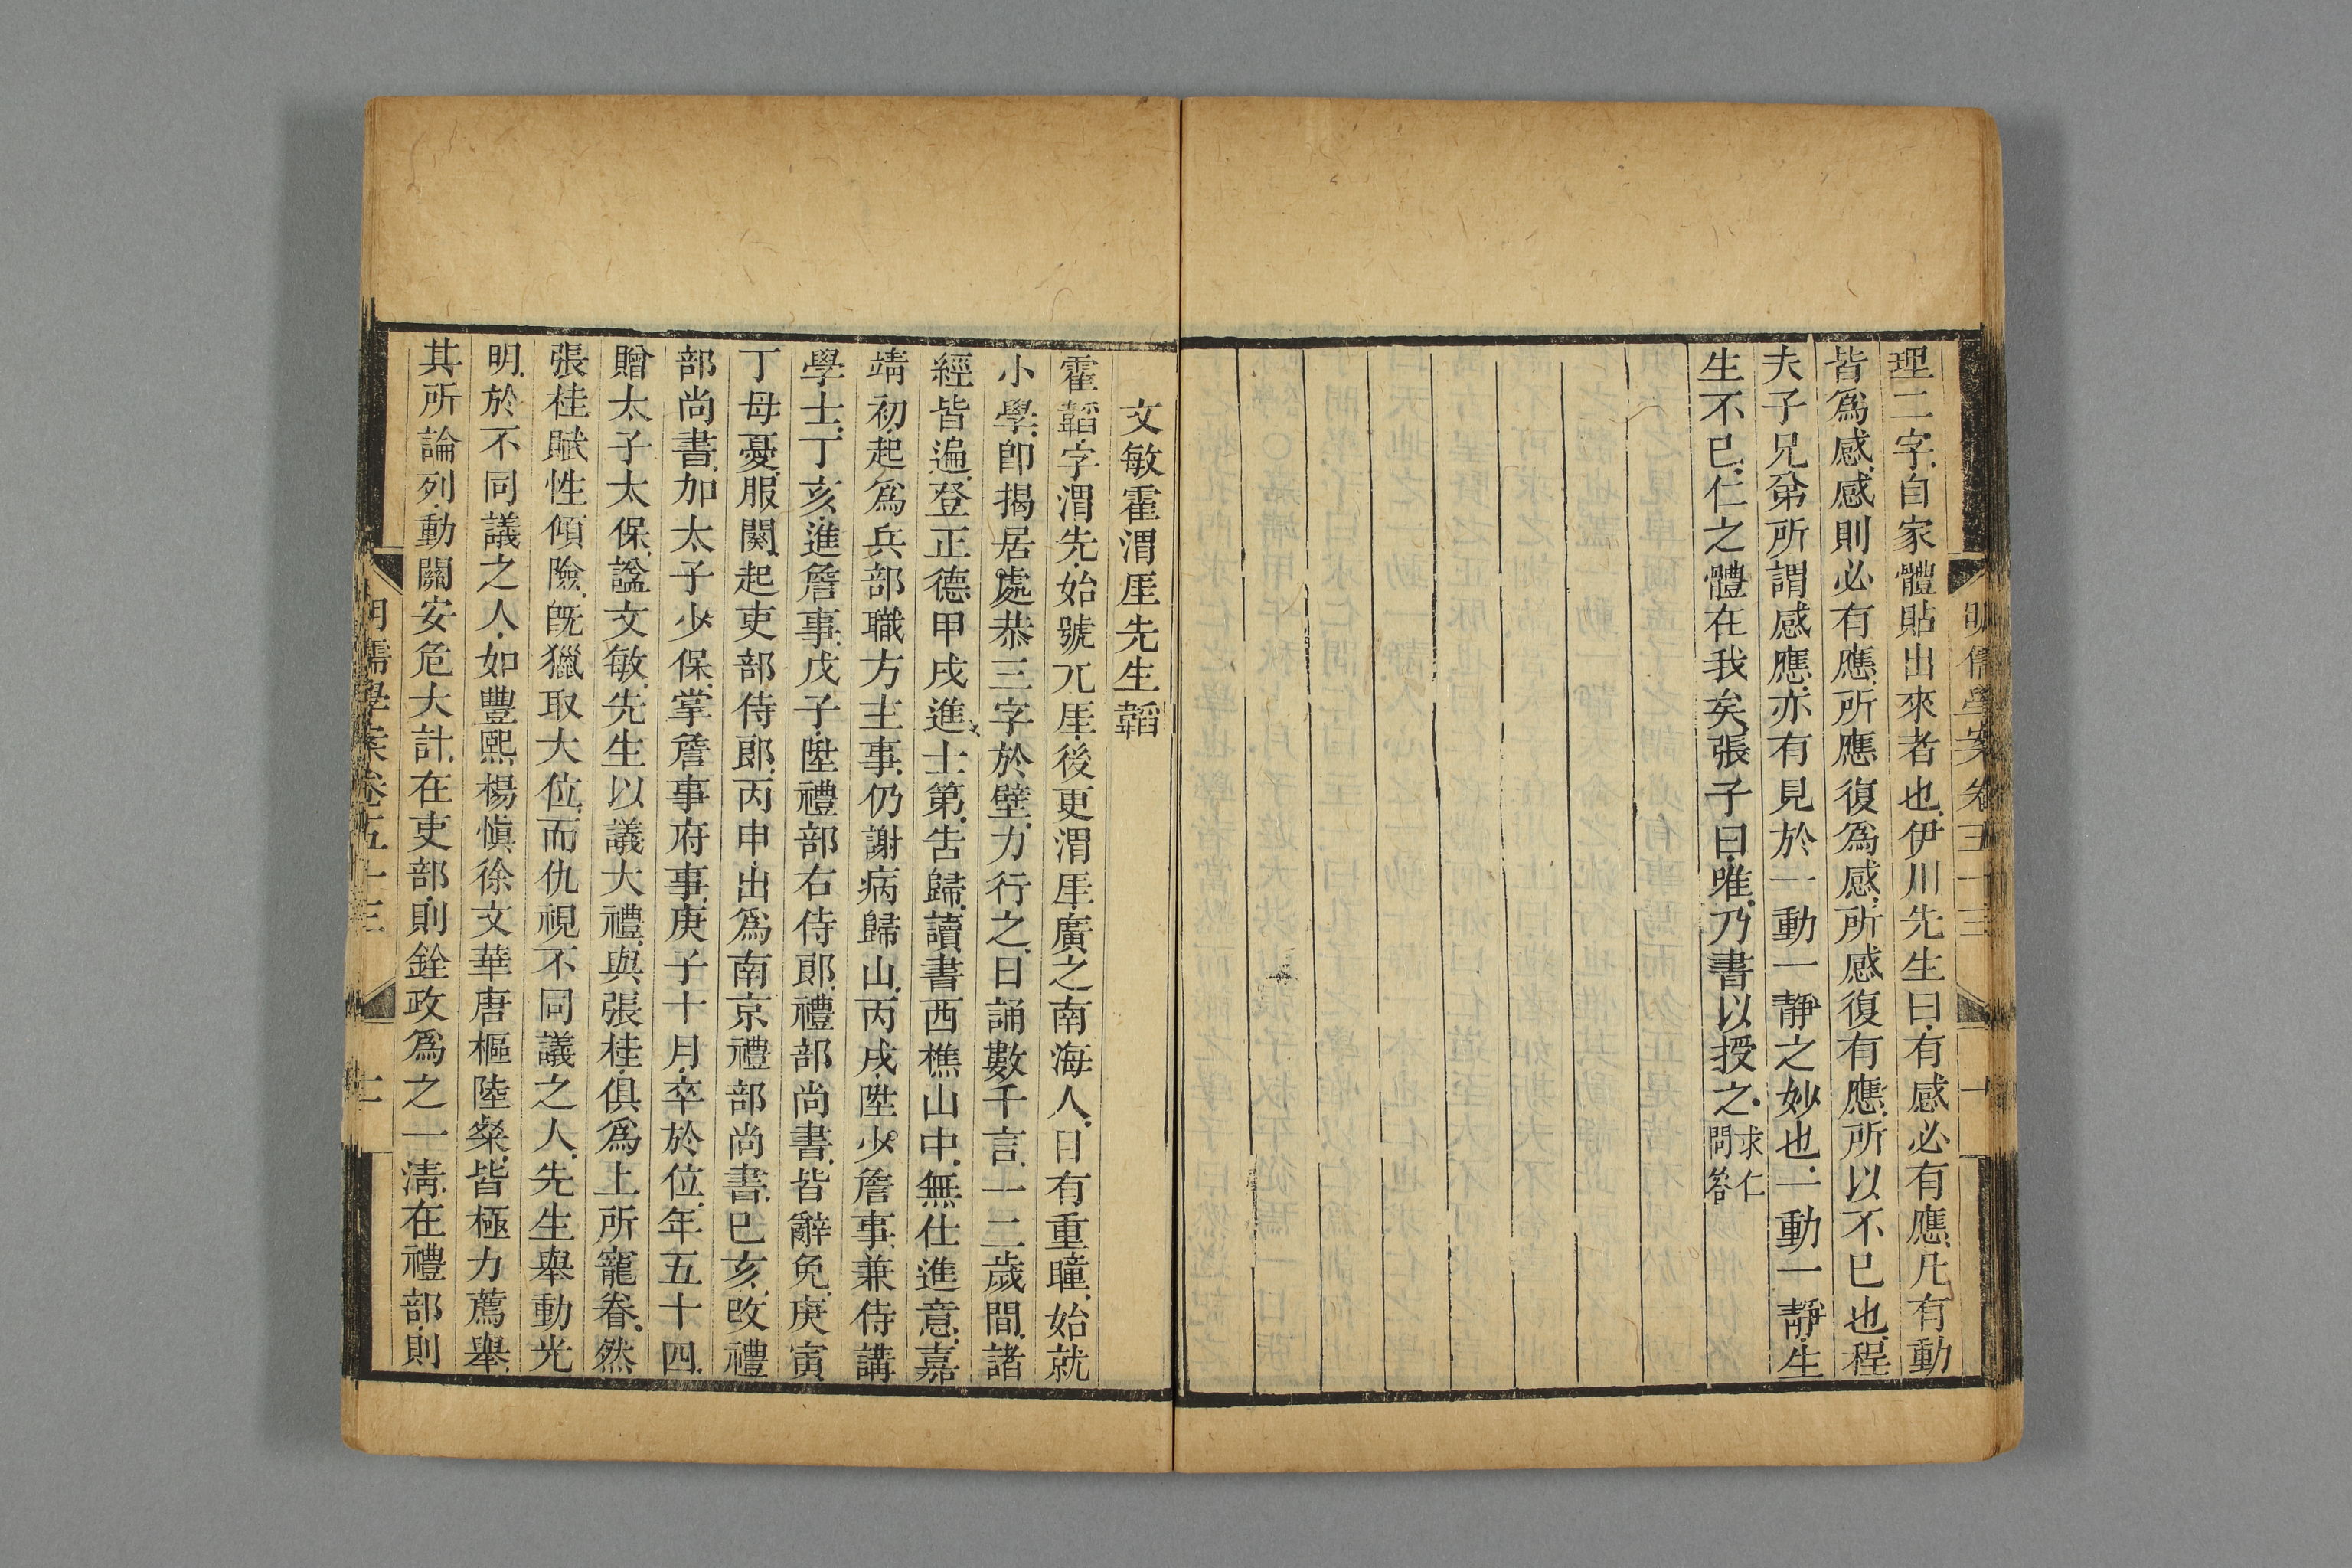 理二字自家體貼出來者也伊川先生曰有感必有應凡有動
皆爲感感則必有應所應復爲感所感復有應所以不已也程
夫子兄弟所謂感應亦有見於一動一靜之妙也一動一靜生
生不已仁之體在我矣張子曰唯乃書以授之求仁
問答
文敏霍渭厓先生韜
霍韜字渭先始號兀厓後更渭厓廣之南海人目有重瞳始就
小學卽揭居處恭三字於壁力行之日誦數千言一二歲間諸
經皆遍登正德甲戌進士第告歸讀書西樵山中無仕進意嘉
靖初起爲兵部職方主事仍謝病歸山丙戌陞少詹事兼侍講
學士丁亥進詹事戊子陞禮部右侍郎禮部尚書皆辭免庚寅
丁母憂服闋起吏部侍郎丙申出爲南京禮部尚書巳亥改禮
部尚書加太子少保掌詹事府事庚子十月卒於位年五十四
贈太子太保諡文敏先生以議大禮與張桂俱爲上所寵眷然
張桂賦性傾險旣獵取大位而仇視不同議之人先生舉動光
明於不同議之人如豐熙楊愼徐文華唐樞陸粲皆極力薦舉
其所論列動關安危大計在吏部則銓政爲之一淸在禮部則
明儒學案卷五十三